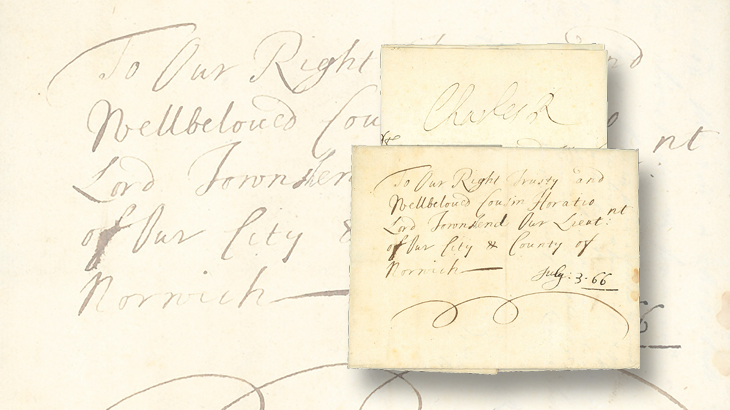 Charles R
To Our Right Trusty and
Wellbeloved Cousin Horatio
Lord Townsend Our Lieut:nt
of Our City & County of
Norwich
July: 3: 66
To Our Right
Wellbeloved Cou
Lord Townsen
of Our City &
Norwich